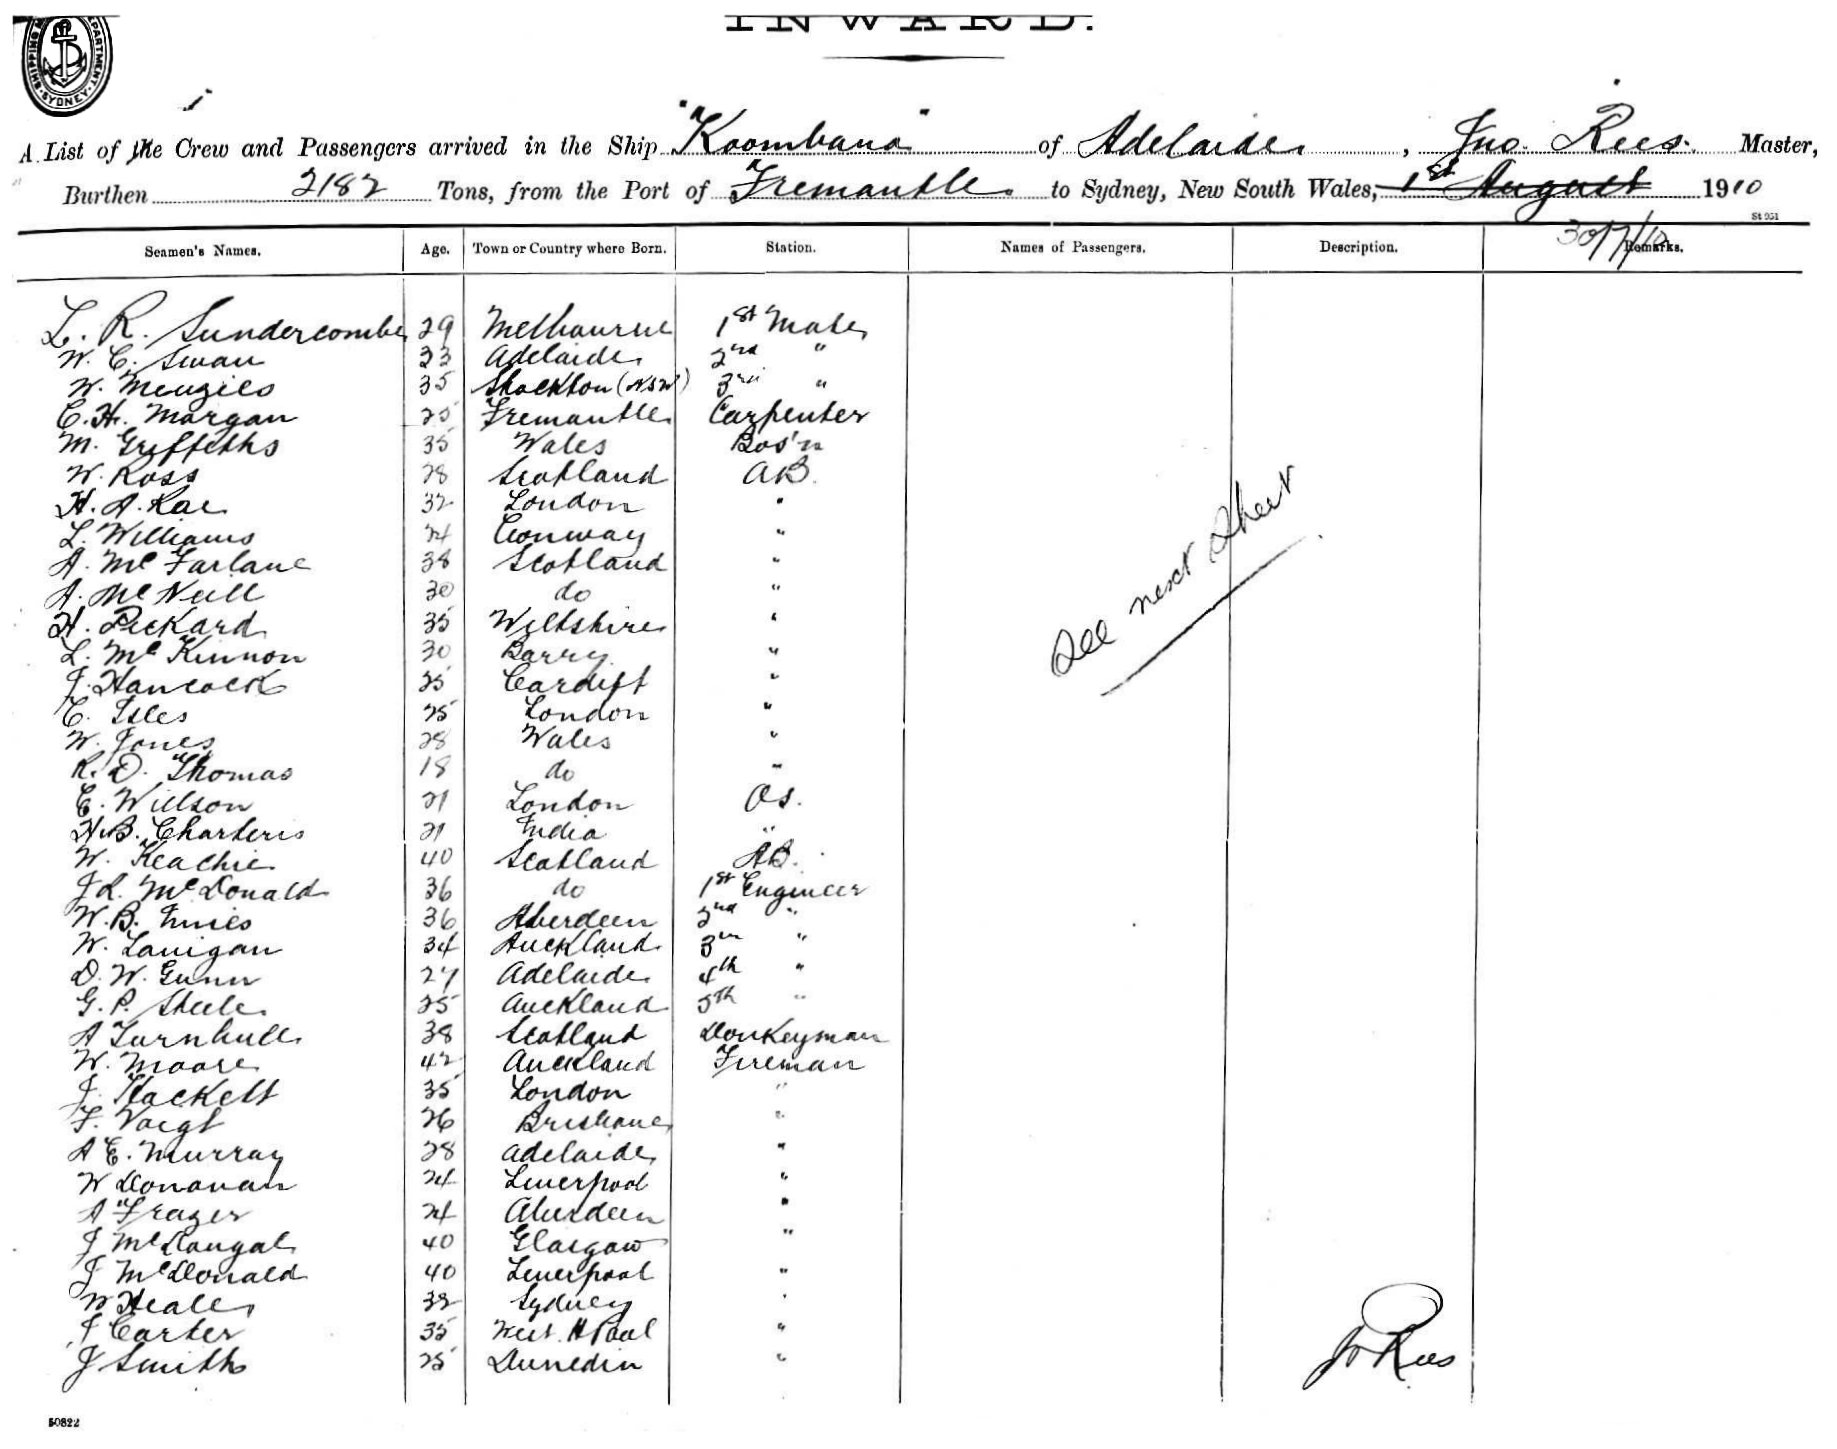 INWARD.
SHIPPING DEPARTMENT. SYDNEY.
A List of the Crew and Passengers arrived in the Ship "Koombana" of Adelaide, Jno. Rees. Master,
Burthen 2182 Tons, from the Port of Fremantle to Sydney, New South Wales, 1st August 1910
St 951
30/7/10
Seamen's Names. Age. Town or Country where Born. Station. Names of Passengers. Description. Remarks.
L. R. Sundercombe 29 Melbourne 1st Mate
W. C. Swan 33 Adelaide 2nd "
W. Menzies 35 Stockton (NSW) 3rd "
C. H. Morgan 25 Fremantle Carpenter
M. Griffiths 35 Wales Bos'n
W. Ross 28 Scotland AB.
H. A. Rae 32 London "
L. Williams 24 Conway "
A. McFarlane 38 Scotland "
A. McNeill 30 do "
H. Pickard 35 Wiltshire "
L. McKinnon 30 Barry "
J. Hancock 25 Cardiff "
C. Isles 25 London "
W. Jones 28 Wales "
R. D. Thomas 18 do "
E. Willson 21 London OS.
H. B. Charteris 21 India "
W. Keachie 40 Scotland AB.
J R. McDonald 36 do 1st Engineer
W. B. Innies 36 Aberdeen 2nd "
W. Lanigan 34 Auckland 3rd "
D. W. Gunn 27 Adelaide 4th "
G. P. Steele 25 Auckland 5th "
A Turnbull 38 Scotland Donkeyman
W. Moore 42 Auckland Fireman
J. Hackett 35 London "
F. Voigt 26 Brisbane "
A E. Murray 28 Adelaide "
W Donovan 24 Liverpool "
A Frazer 24 Aberdeen "
J McDougal 40 Glasgow "
J McDonald 40 Liverpool "
W Heale 32 Sydney "
J Carter 35 West H Pool "
J Smith 25 Dunedin "
See next Sheet
Jno Rees
50822